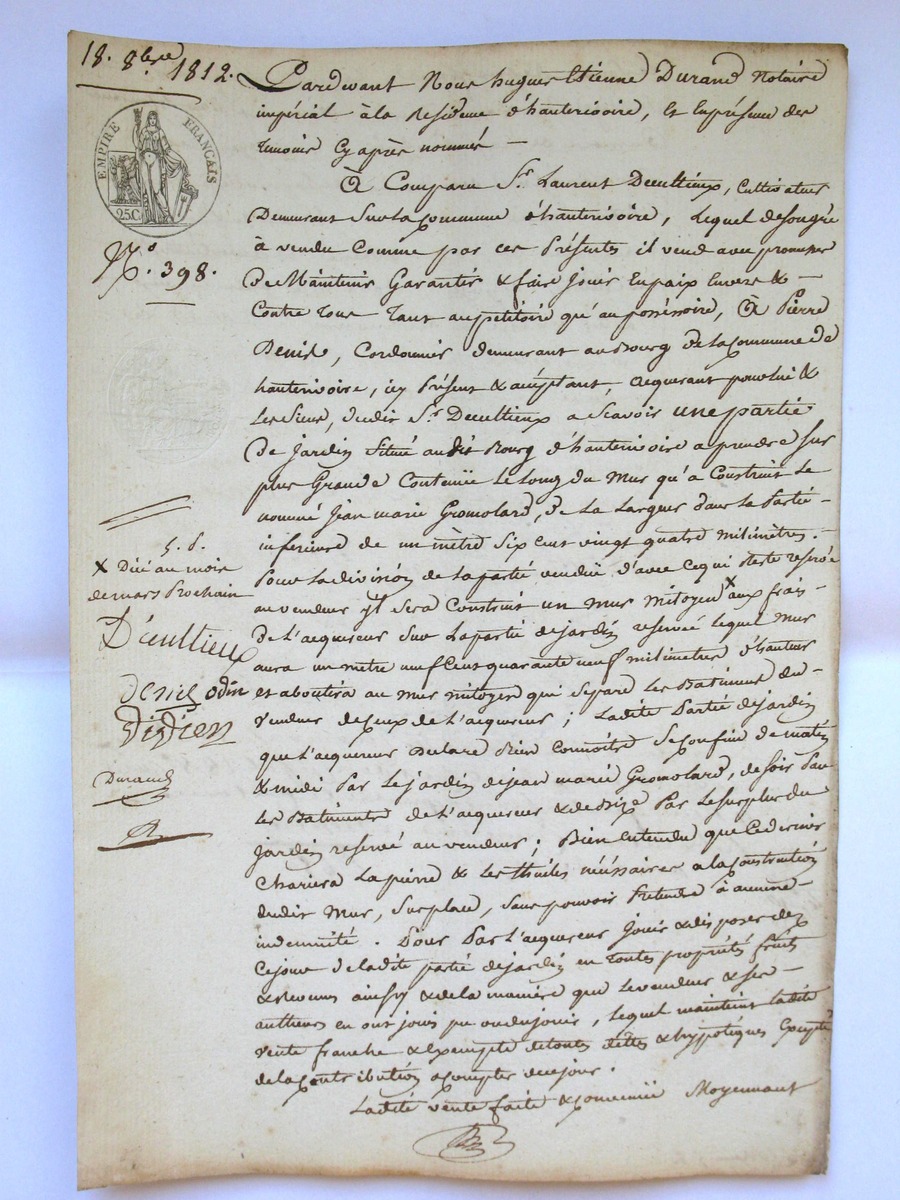 18. 8bre 1812.
EMPIRE FRANÇAIS
25 C.
N.o 398.
Pardevant Nous hugues Etienne Durand Notaire
impérial à la Residence d'hauterivoire, Et En présence des
Temoins Cy après nommés —
A Comparu Sr. Laurent Decultieux, Cultivateur
Demeurant Sur La Commune d'hauterivoire, Lequel de son gré
à vendu Comme par ces Présentes il vend avec promesse
De Maintenir Garantir & faire Jouir En paix Envers & —
Contre Tous Tant au pétitoire qu'au posséssoire, A Pierre
Denis, Cordonnier demeurant au Bourg de la Commune de
hauterivoire, icy Présent & acceptant, acquerant pour lui &
Les Siens, dudit Sr. Decultieux a Scavoir une partie
De Jardin Situé audit Bourg d'hauterivoire a prendre Sur
plus Grande Contenüe Le Long du Mur qu'à Construit Le
nommé Jean marie Gromolard, de La Largeur dans la Partie —
inferieure de un mètre Six Cent vingt quatre milimètres. —
Pour La division de La partie vendüe d'avec Ce qui Reste reservé
au vendeur yl Sera Construit un Mur mitoyen x aux frais —
De L'acquereur Sur La partie de jardin reservée Lequel Mur
aura un mètre neuf Cent quarante neuf milimetres d'hauteur
et aboutira au Mur mitoyen qui Separe Les Batiments du —
Vendeur de Ceux de L'acquereur ; Ladite Partie de jardin
que L'acquereur Declare Bien Connoitre Se Confine de matin
& midi Par Le jardin de jean marie Gromolard, de Soir Par
Les Batiments de L'acquereur & de Bize Par Le Surplus du
Jardin reservé au vendeur ; Bien Entendu que Ce dernier
Chariera La pierre & Les thuiles nécéssaires a la Construction
dudit Mur, Sur place, Sans pouvoir Pretendre à aucune —
indemnité. Pour Par L'acquereur Jouir & disposer dez
Ce jour de ladite partie de jardin en Toutes propriétés fruits
& revenus ainsy & de la manière que Le vendeur & Ses —
autheurs en ont joui pu ou du jouir, Lequel maintient ladite
Vente franche & Exempte de toutes dettes & hypotéques Excepté
de la Contribution a Compter de ce jour.
Ladite vente faite & Convenüe Moyennant
x D'ici au mois
de mars Prochain
Décultieux
denis odin
Didien
Durand